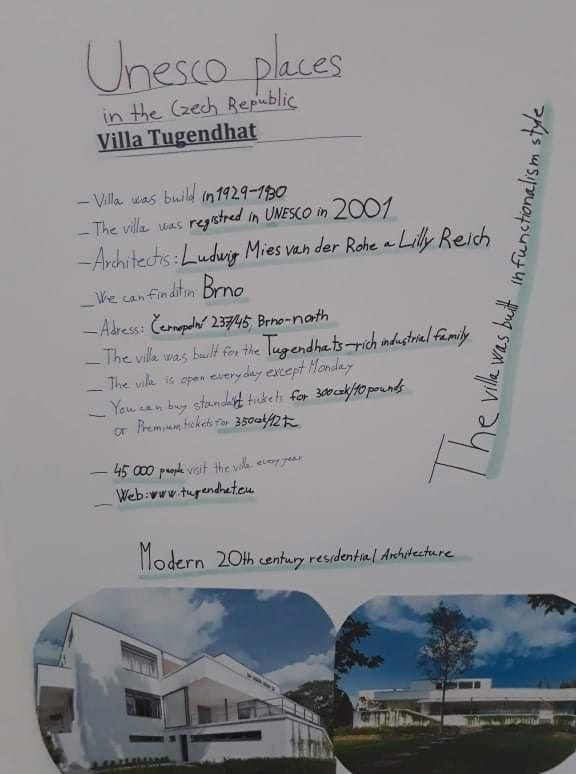 Unesco places
in the Czech Republic
Villa Tugendhat
— Villa was build in 1929-1930
— The villa was registred in UNESCO in 2001
— Architectis: Ludwig Mies van der Rohe a Lilly Reich
— We can find it in Brno
— Adress: Černopolní 237/45, Brno-north
— The villa was built for the Tugendhats - rich industrial family
— The villa is open everyday except Monday
— You can buy standart tickets for 300czk/10 pounds
or Premium tickets for 350czk/12£
— 45 000 people visit the villa every year
— Web: www.tugendhat.eu
The villa was built in functionalism style
Modern 20th century residential Architecture